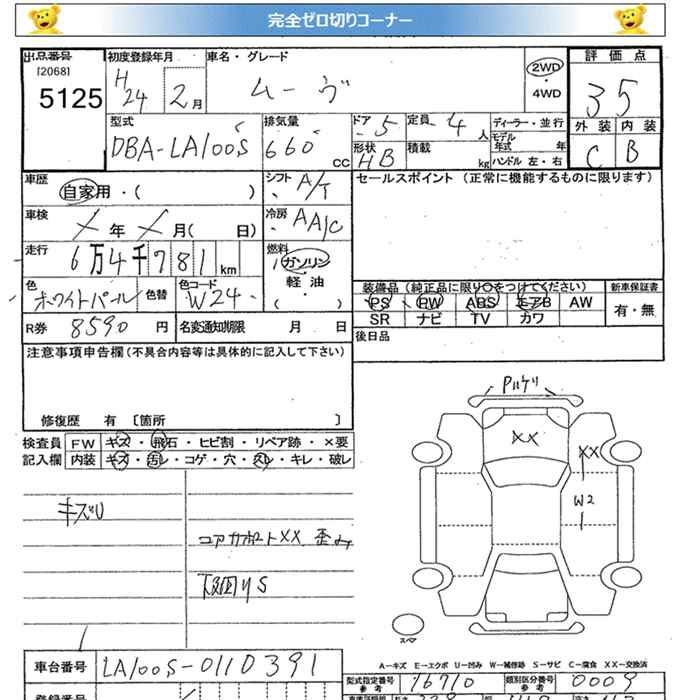 完全ゼロ切りコーナー
出品番号 初度登録年月 車名・グレード 評価点
[2068] 5125 H24 2月 ムーヴ 2WD・4WD 3 5
型式 排気量 ドア 5 定員 4人 ディーラー・並行 外装 内装
DBA-LA100S 660cc 形状 HB 積載 kg モデル年式 年 ハンドル 左・右 C B
車歴 自家用・( ) シフト A/T セールスポイント (正常に機能するものに限ります)
車検 年 月( 日) 冷房 AAC
走行 6万4千781km 燃料 ガソリン 軽油 ( )
色 ホワイトパール 色替 色コード W24 装備品 (純正品に限り○をつけてください) 新車保証書
PS PW ABS エアB AW 有・無
R券 8590円 名変通知期限 月 日 SR ナビ TV カワ
注意事項申告欄(不具合内容等は具体的に記入して下さい) 後日品
修復歴 有 〔箇所 〕
検査員 FW キズ・飛石・ヒビ割・リペア跡・×要
記入欄 内装 キズ・汚レ・コゲ・穴・スレ・キレ・破レ
Pハケリ
XX XX
W2
キズU
コアサポートXX 歪み
下廻りS
スペア
A-キズ E-エクボ U-凹み W-補修跡 S-サビ C-腐食 XX-交換済
車台番号 LA100S-0110391 型式指定番号 参考 16710 類別区分番号 参考 0009
登録番号